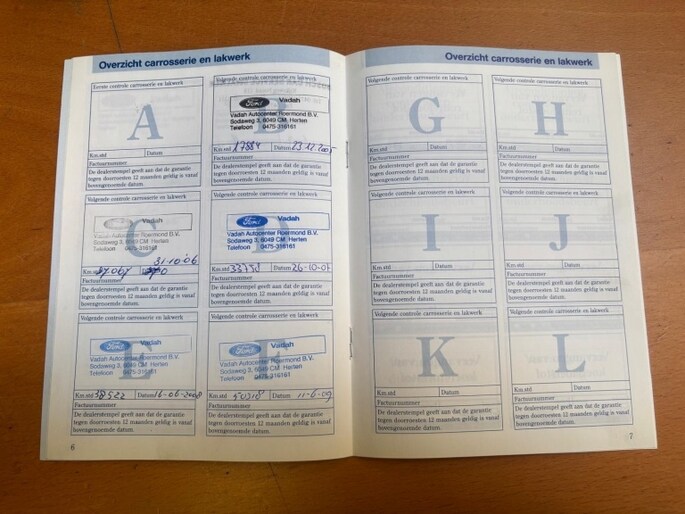 Overzicht carrosserie en lakwerk
Eerste controle carrosserie en lakwerk
A
Km.std Datum
Factuurnummer
De dealerstempel geeft aan dat de garantie
tegen doorroesten 12 maanden geldig is vanaf
bovengenoemde datum.
Volgende controle carrosserie en lakwerk
B
Ford Vadah
Vadah Autocenter Roermond B.V.
Sodaweg 3, 6049 CM Herten
Telefoon 0475-316161
Km.std 17884 Datum 23.12.2005
Factuurnummer
De dealerstempel geeft aan dat de garantie
tegen doorroesten 12 maanden geldig is vanaf
bovengenoemde datum.
Volgende controle carrosserie en lakwerk
C
Ford Vadah
Vadah Autocenter Roermond B.V.
Sodaweg 3, 6049 CM Herten
Telefoon 0475-316161
31-10-06
Km.std Datum
Factuurnummer
De dealerstempel geeft aan dat de garantie
tegen doorroesten 12 maanden geldig is vanaf
bovengenoemde datum.
Volgende controle carrosserie en lakwerk
D
Ford Vadah
Vadah Autocenter Roermond B.V.
Sodaweg 3, 6049 CM Herten
Telefoon 0475-316161
Km.std Datum 26-10-07
Factuurnummer
De dealerstempel geeft aan dat de garantie
tegen doorroesten 12 maanden geldig is vanaf
bovengenoemde datum.
Volgende controle carrosserie en lakwerk
E
Ford Vadah
Vadah Autocenter Roermond B.V.
Sodaweg 3, 6049 CM Herten
Telefoon 0475-316161
Km.std 38522 Datum 16-06-2008
Factuurnummer
De dealerstempel geeft aan dat de garantie
tegen doorroesten 12 maanden geldig is vanaf
bovengenoemde datum.
Volgende controle carrosserie en lakwerk
F
Ford Vadah
Vadah Autocenter Roermond B.V.
Sodaweg 3, 6049 CM Herten
Telefoon 0475-316161
Km.std 50318 Datum 11-6-09
Factuurnummer
De dealerstempel geeft aan dat de garantie
tegen doorroesten 12 maanden geldig is vanaf
bovengenoemde datum.
6
Overzicht carrosserie en lakwerk
Volgende controle carrosserie en lakwerk
G
Km.std Datum
Factuurnummer
De dealerstempel geeft aan dat de garantie
tegen doorroesten 12 maanden geldig is vanaf
bovengenoemde datum.
Volgende controle carrosserie en lakwerk
H
Km.std Datum
Factuurnummer
De dealerstempel geeft aan dat de garantie
tegen doorroesten 12 maanden geldig is vanaf
bovengenoemde datum.
Volgende controle carrosserie en lakwerk
I
Km.std Datum
Factuurnummer
De dealerstempel geeft aan dat de garantie
tegen doorroesten 12 maanden geldig is vanaf
bovengenoemde datum.
Volgende controle carrosserie en lakwerk
J
Km.std Datum
Factuurnummer
De dealerstempel geeft aan dat de garantie
tegen doorroesten 12 maanden geldig is vanaf
bovengenoemde datum.
Volgende controle carrosserie en lakwerk
K
Km.std Datum
Factuurnummer
De dealerstempel geeft aan dat de garantie
tegen doorroesten 12 maanden geldig is vanaf
bovengenoemde datum.
Volgende controle carrosserie en lakwerk
L
Km.std Datum
Factuurnummer
De dealerstempel geeft aan dat de garantie
tegen doorroesten 12 maanden geldig is vanaf
bovengenoemde datum.
7